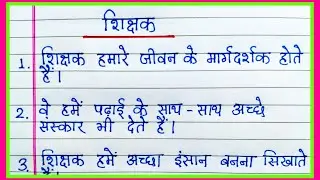 शिक्षक
1. शिक्षक हमारे जीवन के मार्गदर्शक होते
हैं।
2. वे हमें पढ़ाई के साथ-साथ अच्छे
संस्कार भी देते हैं।
3. शिक्षक हमें अच्छा इंसान बनना सिखाते
हैं।